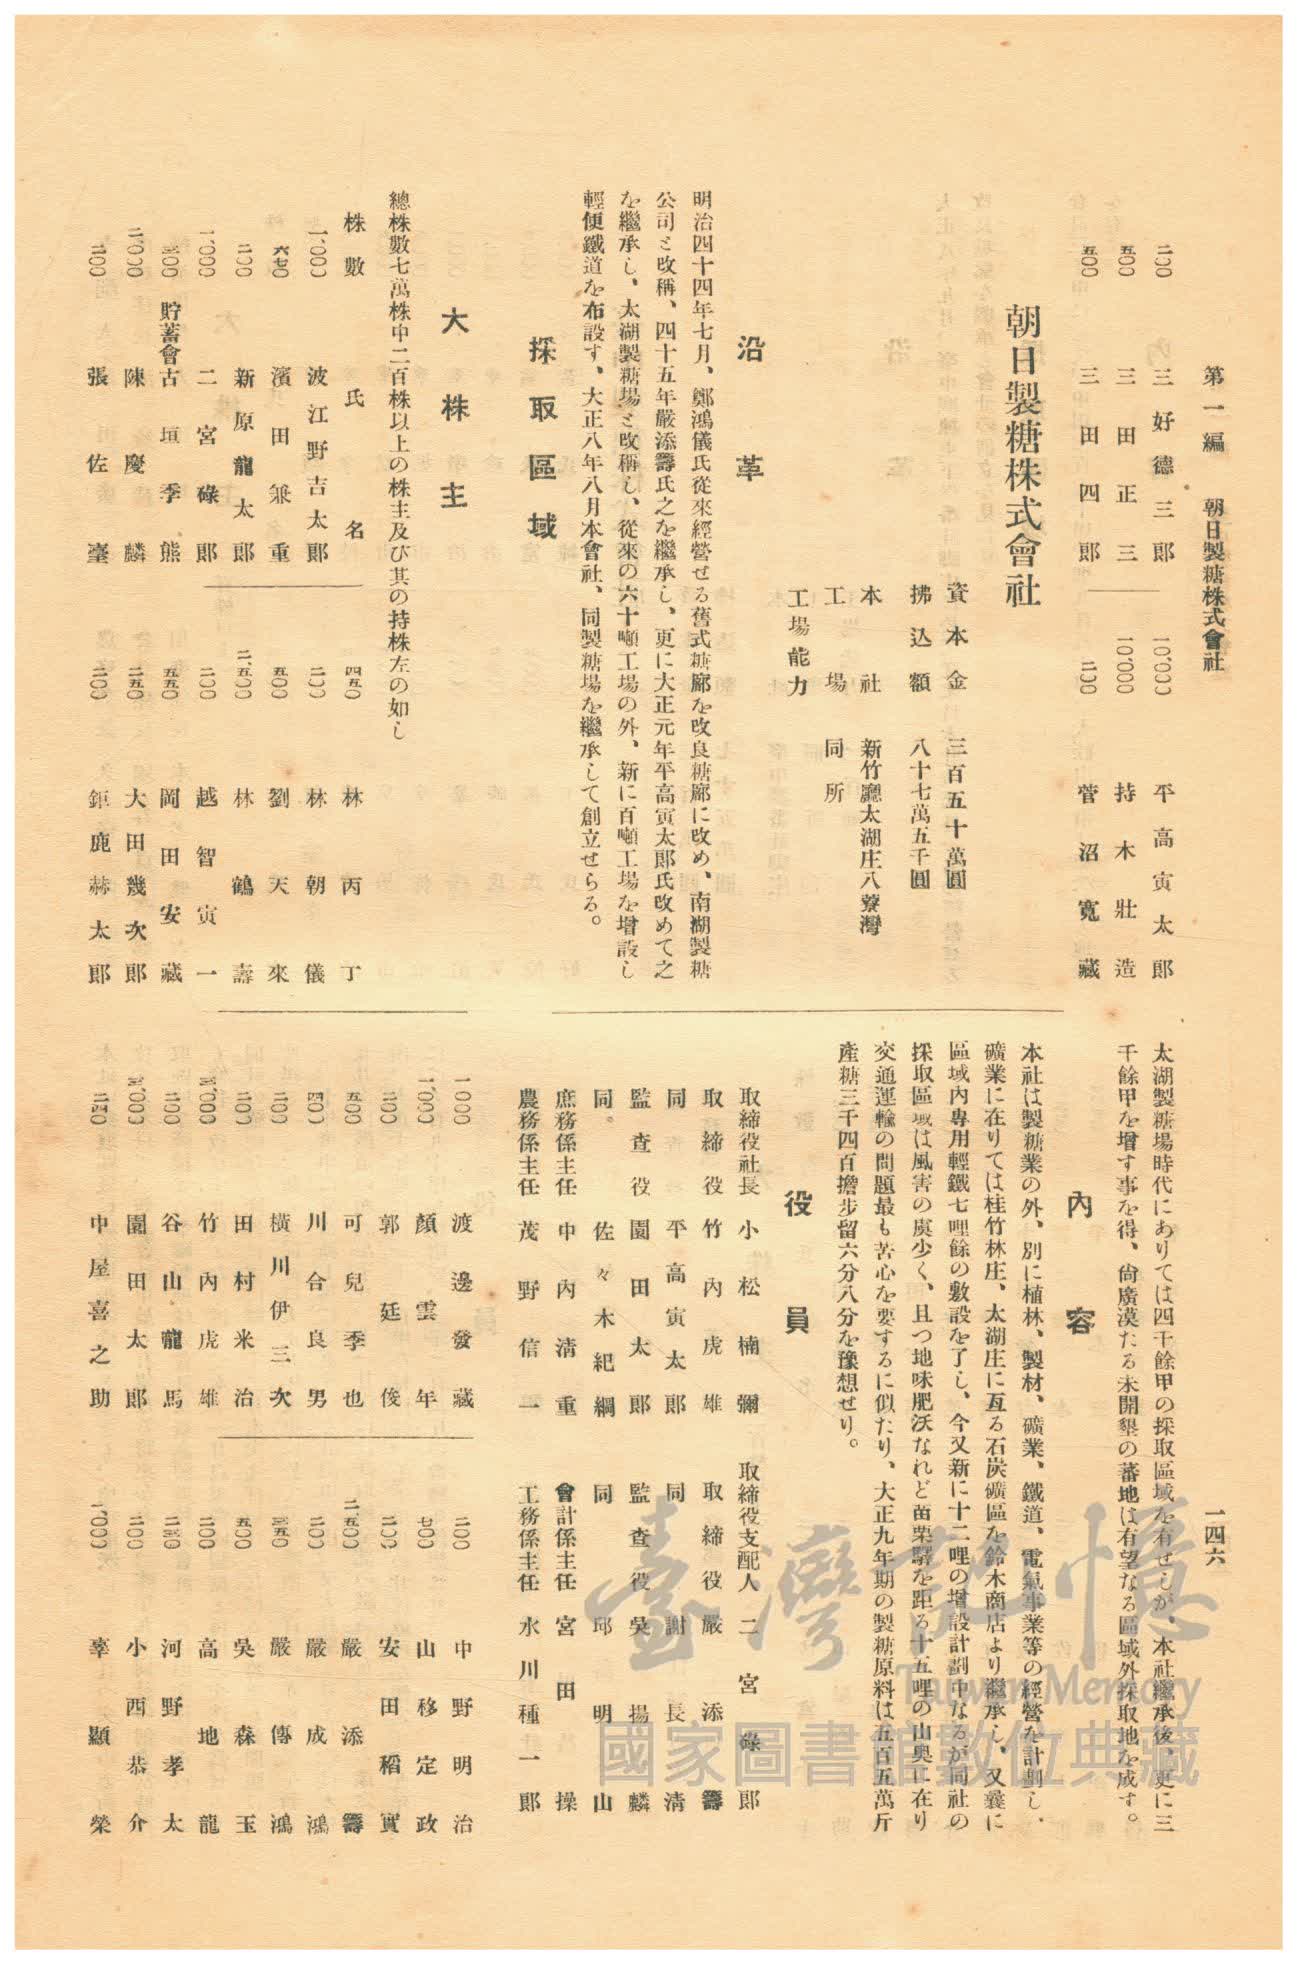 第一編　朝日製糖株式會社
一四六
二〇〇　三好德三郎
五〇〇　三田正三
五〇〇　三田四郎
一〇、〇〇〇　平高寅太郎
一〇、〇〇〇　持木壯造
二〇〇　菅沼寬藏
朝日製糖株式會社
資本金　三百五十萬圓
拂込額　八十七萬五千圓
本社　新竹廳太湖庄八藔灣
工場　同所
工場能力
沿革
明治四十四年七月、鄭鴻儀氏從來經營せる舊式糖廍を改良糖廍に改め、南湖製糖
公司と改稱、四十五年嚴添籌氏之を繼承し、更に大正元年平高寅太郎氏改めて之
を繼承し、太湖製糖場と改稱し、從來の六十噸工場の外、新に百噸工場を增設し
輕便鐵道を布設す、大正八年八月本會社、同製糖場を繼承して創立せらる。
採取區域
太湖製糖場時代にありては四千餘甲の採取區域を有せしが、本社繼承後、更に三
千餘甲を增す事を得、尙廣漠たる未開墾の蕃地は有望なる區域外採取地を成す。
內容
本社は製糖業の外、別に植林、製材、礦業、鐵道、電氣事業等の經營を計劃し、
礦業に在りては桂竹林庄、太湖庄に亙る石炭礦區を鈴木商店より繼承し、又曩に
區域內專用輕鐵七哩餘の敷設を了し、今又新に十二哩の增設計劃中なるが同社の
採取區域は風害の虞少く、且つ地味肥沃なれど苗栗驛を距る十五哩の山奧に在り
交通運輸の問題最も苦心を要するに似たり、大正九年期の製糖原料は五百五萬斤
產糖三千四百擔步留六分八分を豫想せり。
役員
取締役社長　小松楠彌
取締役　竹內虎雄
同　平高寅太郎
監查役　園田太郎
同。　佐々木紀綱
庶務係主任　中內淸重
農務係主任　茂野信一
取締役支配人　二宮碌郎
取締役　嚴添籌
同　謝長淸
監查役　吳揚麟
同　邱明山
會計係主任　宮田操
工務係主任　水川種一郎
大株主
總株數七萬株中二百株以上の株主及び其の持株左の如し
株數　氏名
一、〇〇〇　波江野吉太郎
六七〇　濱田兼重
二〇〇　新原龍太郎
一、〇〇〇　二宮碌郎
三〇〇　貯蓄會古垣季熊
二、〇〇〇　陳慶麟
二〇〇　張佐臺
四五〇　林丙丁
二〇〇　林朝儀
五〇〇　劉天來
二、五〇〇　林鶴壽
二〇〇　越智寅一
五五〇　岡田安藏
二五〇　大田幾次郎
二〇〇　鉅鹿赫太郎
一、〇〇〇　渡邊發藏
一、〇〇〇　顏雲年
二〇〇　郭廷俊
五〇〇　可兒季也
四〇〇　川合良男
二〇〇　橫川伊三次
二〇〇　田村米治
三、〇〇〇　竹內虎雄
二〇〇　谷山龍馬
三、〇〇〇　園田太郎
二四〇　中屋喜之助
二〇〇　中野明治
七〇〇　山移定政
二〇〇　安田稻實
二、五〇〇　嚴添籌
二〇〇　嚴成鴻
三五〇　嚴傳鴻
五〇〇　吳森玉
二〇〇　高地龍
二三〇　河野孝太
二〇〇　小西恭介
一、〇〇〇　辜顯榮
臺灣記憶
Taiwan Memory
國家圖書館數位典藏